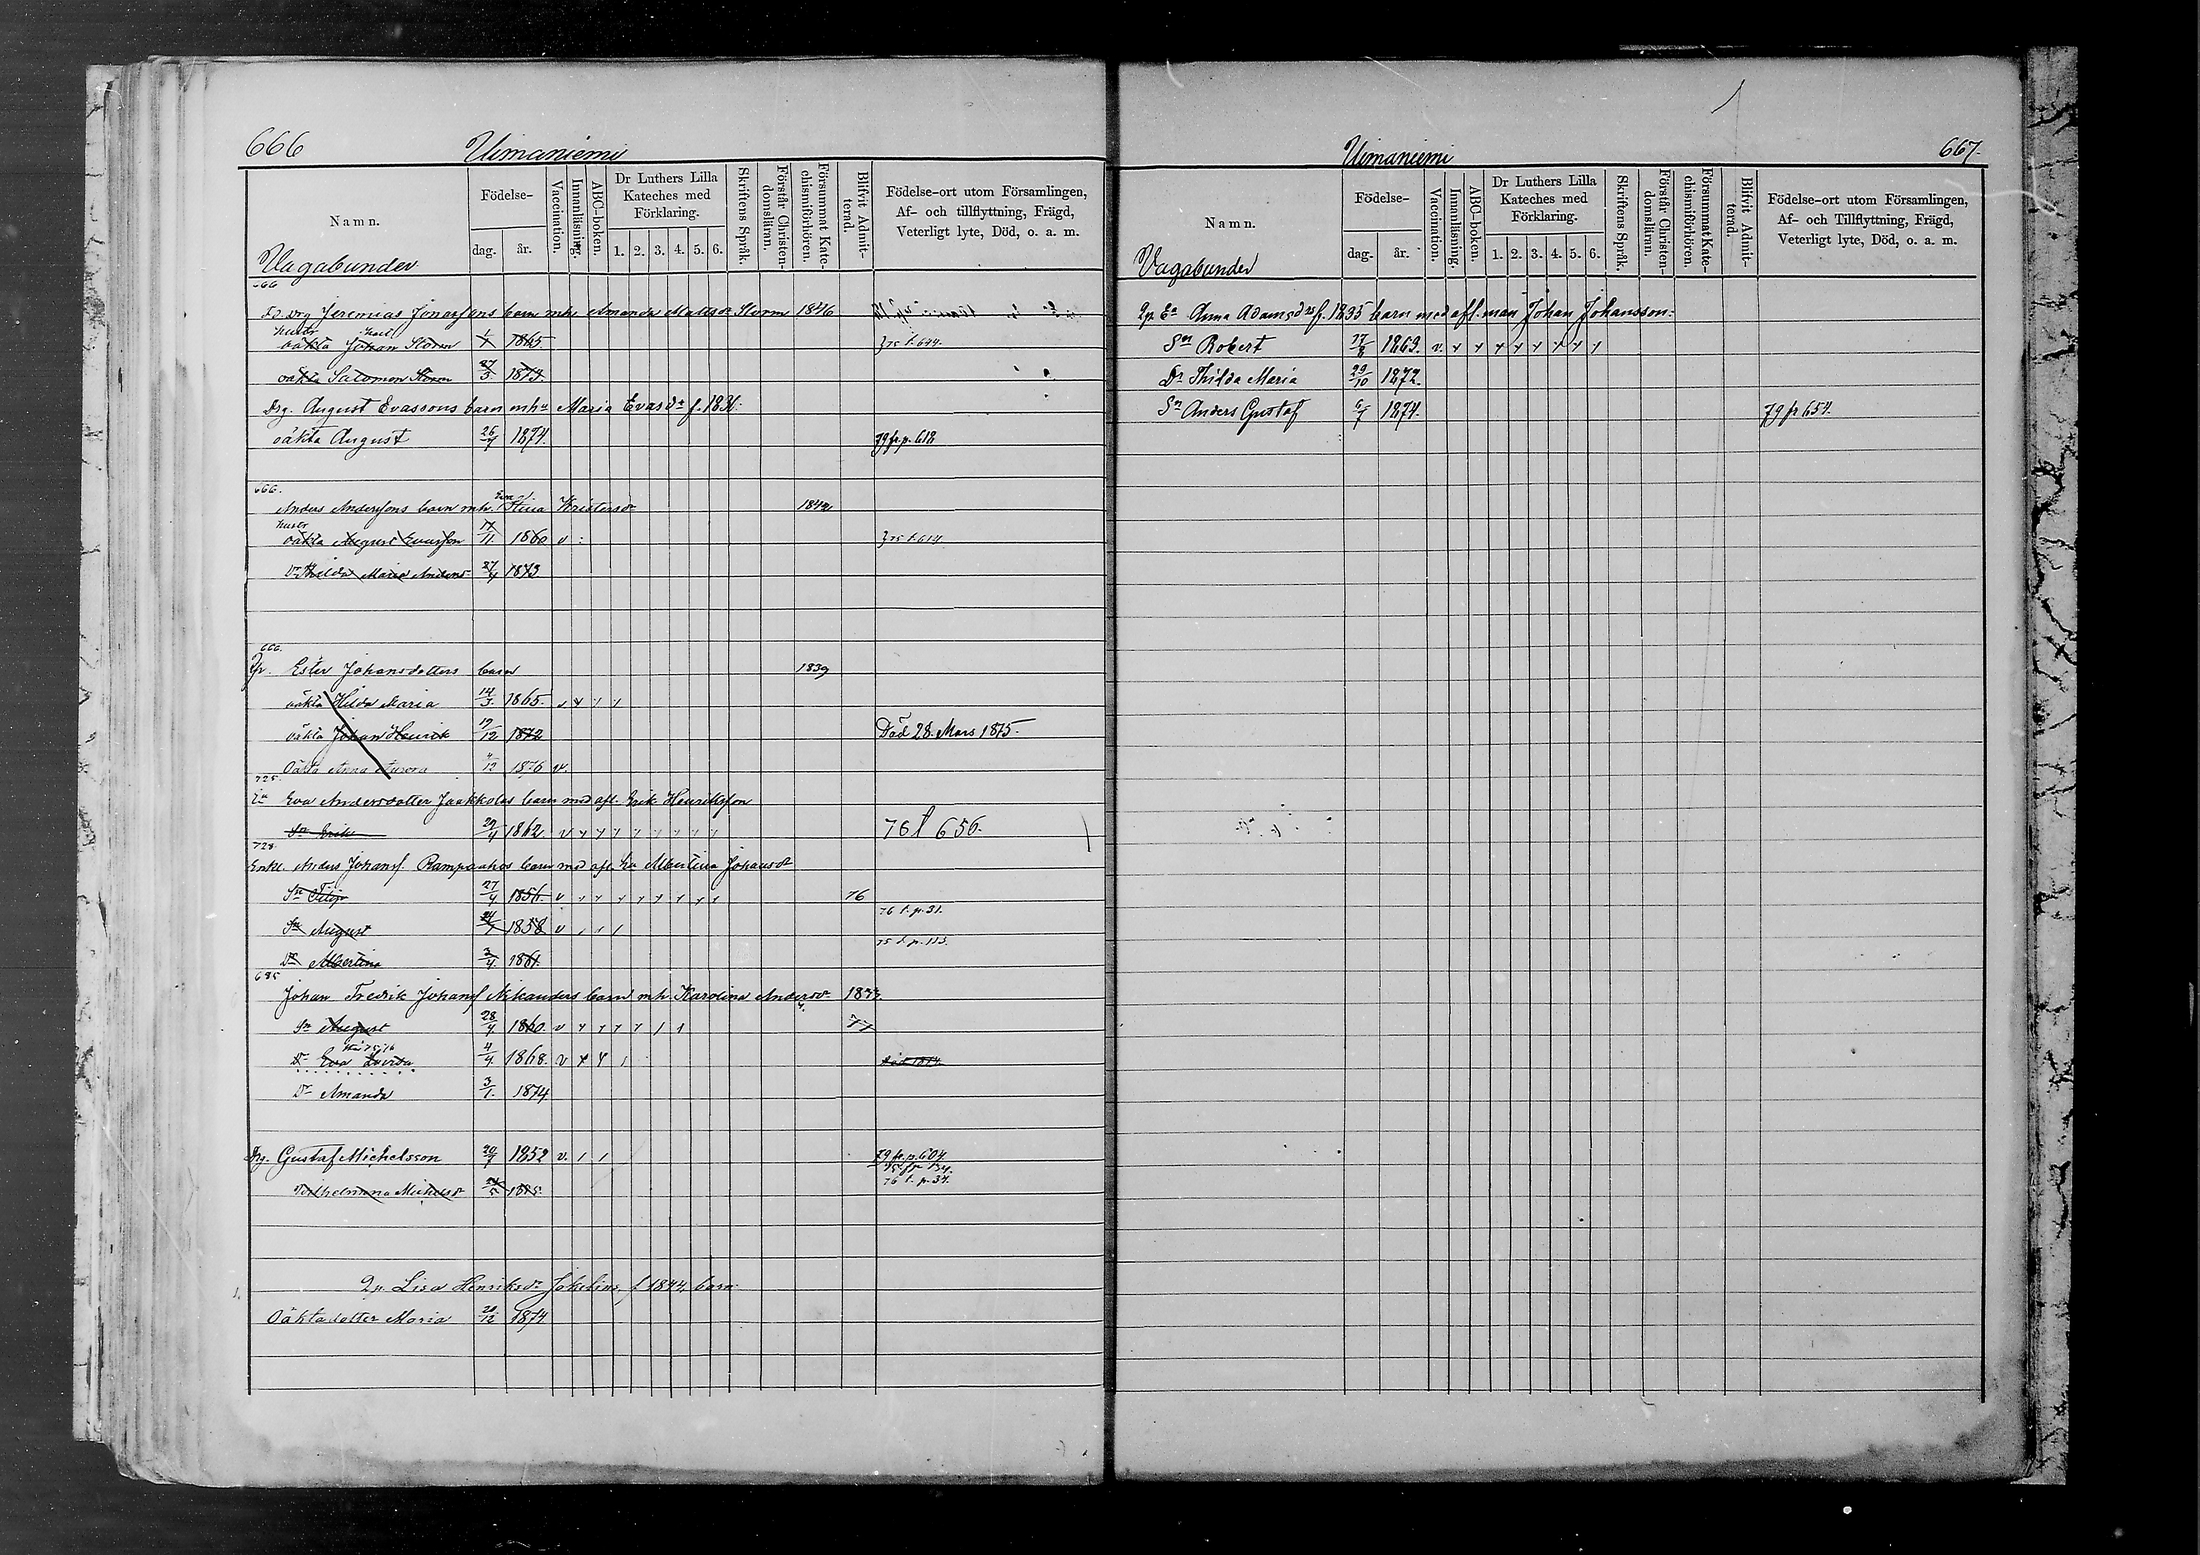 666
Uimaniemi
Namn.
Vagabunder
Födelse-
dag.
år.
Vaccination.
Innanläsning.
ABC-boken.
Dr Luthers Lilla
Kateches med
Förklaring.
1. 2. 3. 4. 5. 6.
Skriftens Språk.
Förstår Christen-
domsläran.
Försummat Kate-
chismiförhören.
Blifvit Admit-
terad.
Födelse-ort utom Församlingen,
Af- och tillflyttning, Frägd,
Veterligt lyte, Död, o. a. m.
666
Drg Jeremias Jonassons barn mh. Amanda Mattsdr Storm 1846
hustr
oäkta Johan Storm 1865. 75 t. 644.
oäkta Salomon Storm 27/3. 1873.
Drg. August Evassons barn m hu Maria Evasdr f. 1831.
oäkta August 26/7 1874. 79 fr. p. 618
666.
Eva
Anders Anderssons barn mh. Stina Kristersdr 1842
hustr
oäkta August Evasson 17/11. 1860 v 75 t. 614
Dr Hilda Maria Anders 27/4 1873
666.
Ip. Ester Johansdotters barn 1839
oäkta Hilda Maria 14/3. 1865.
oäkta Johan Henrik 19/12 1872 Död 28. Mars 1875.
Oäkta Anna Aurora /12 1876 v.
725.
Ea Eva Andersdotter Jaakkolas barn med afl. Erik Henriksson
Sn Erik 29/4 1862. v 76 t 656.
728.
Enkl. Anders Johans. Rampankos barn med afl. hu Albertina Johansdr
Sn Filip 27/4 1856. v 76
76 t. p. 31.
Sn August 24/7 1858 v
75 t. p. 113.
Dr Albertina 3/4. 1861.
685
Johan Fredrik Johans Nikanders barn mh. Karolina Andersdr
Sn August 28/4. 1860. v 77
Dr Eva Lovisa 4/9. 1868. v
Dr Amanda 3/1. 1874
Drg. Gustaf Michelsson 20/7 1852 v. 79 fr. p. 604
75 fr 134.
Vilhelmina Mickelsdr 24/5 1875. 76 t. p. 34.
Ip. Lisa Henriksdr f. 1844, barn:
Oäkta dotter Maria 20/12 1874
Uimaniemi
667.
Namn.
Vagabunder
Födelse-
dag.
år.
Vaccination.
Innanläsning.
ABC-boken.
Dr Luthers Lilla
Kateches med
Förklaring.
1. 2. 3. 4. 5. 6.
Skriftens Språk.
Förstår Christen-
domsläran.
Försummat Kate-
chismiförhören.
Blifvit Admit-
terad.
Födelse-ort utom Församlingen,
Af- och Tillflyttning, Frägd,
Veterligt lyte, Död, o. a. m.
Ip. Ea Anna Adamsdrs f. 1835 barn med afl. man Johan Johansson:
Sn Robert 17/8 1863. v.
Dr Thilda Maria 29/10 1872.
Sn Anders Gustaf 6/7 1874. 79 fr 654.